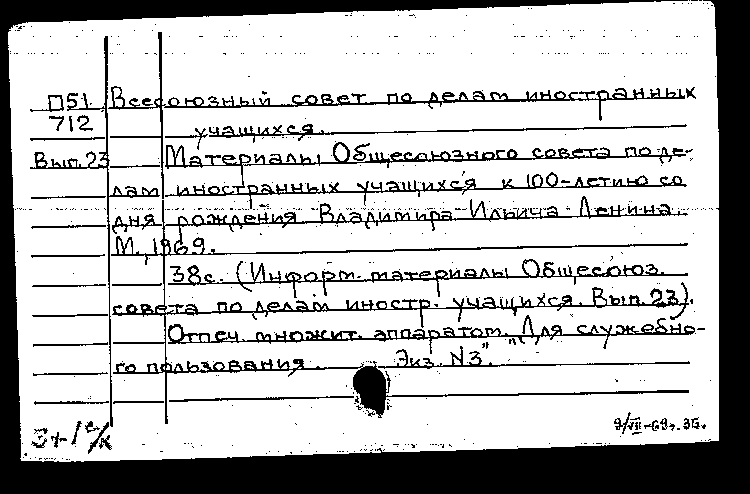 П51 Всесоюзный совет по делам иностранных
712 учащихся.
Вып. 23 Материалы Общесоюзного совета по де-
лам иностранных учащихся к 100-летию со
дня рождения Владимира Ильича Ленина.
М., 1969.
38с. (Информ. материалы Общесоюз.
совета по делам иностр. учащихся. Вып. 23).
Отпеч. множит. аппаратом. "Для служебно-
го пользования. Экз. N3".
9/VII-69г.